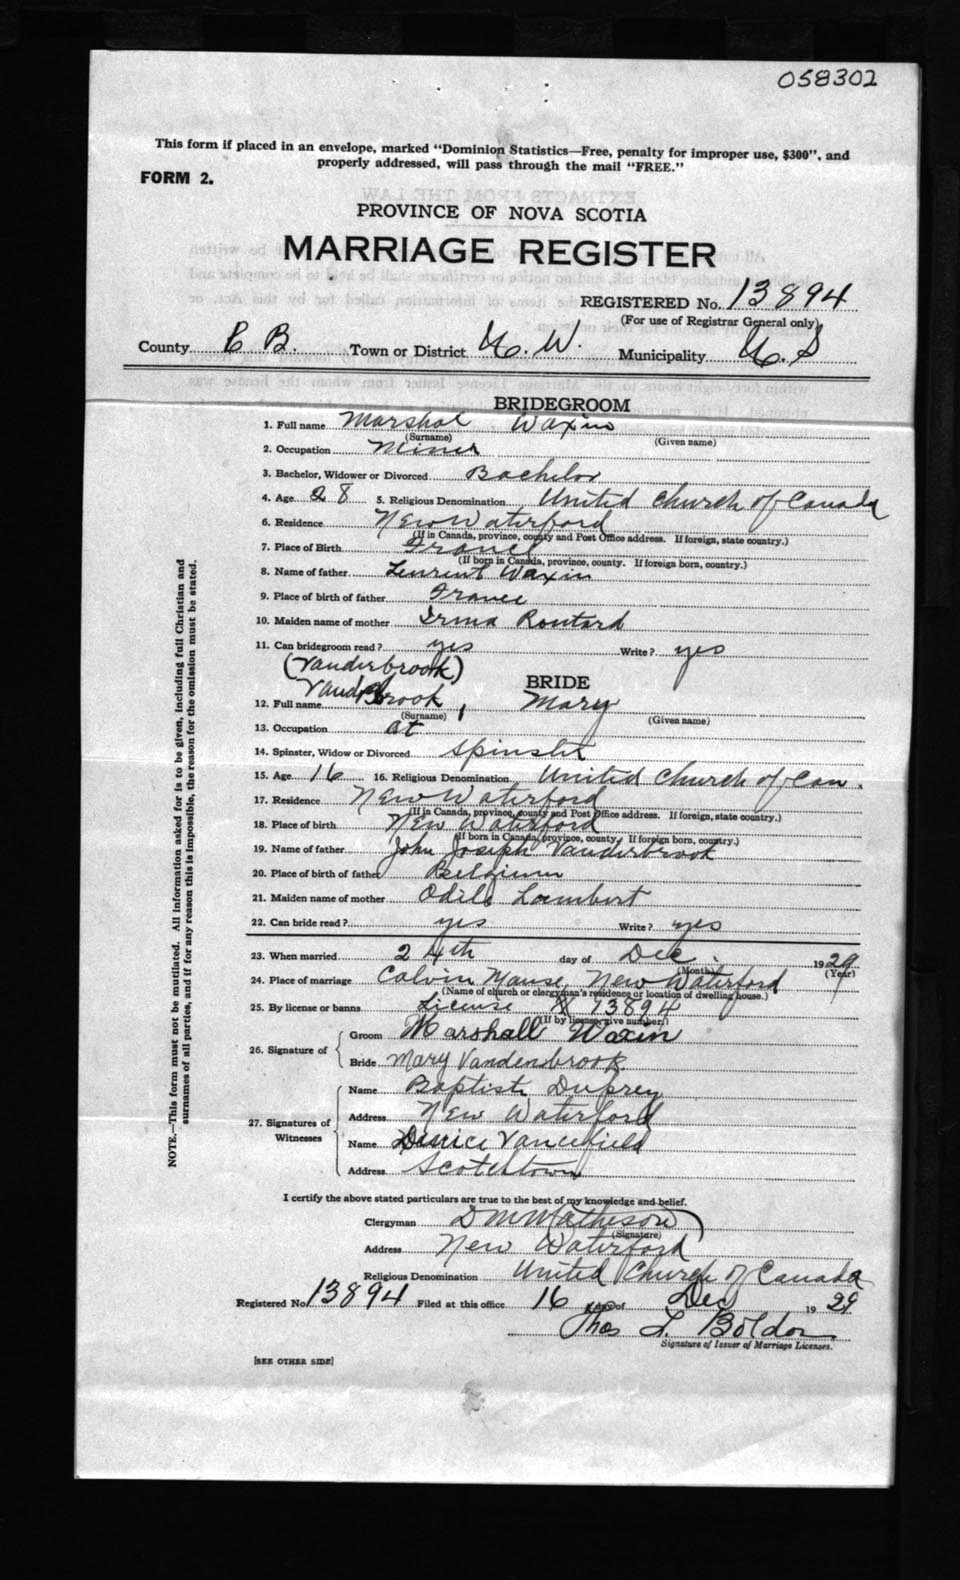 058302
This form if placed in an envelope, marked "Dominion Statistics—Free, penalty for improper use, $300", and
properly addressed, will pass through the mail "FREE."
FORM 2.
PROVINCE OF NOVA SCOTIA
MARRIAGE REGISTER
REGISTERED No. 13894
(For use of Registrar General only)
County C B. Town or District N. W. Municipality N. S
BRIDEGROOM
1. Full name Marshal Waxin
(Surname) (Given name)
2. Occupation Miner
3. Bachelor, Widower or Divorced Bachelor
4. Age 28 5. Religious Denomination United Church of Canada
6. Residence New Waterford
(If in Canada, province, county and Post Office address. If foreign, state country.)
7. Place of Birth France
(If born in Canada, province, county. If foreign born, country.)
8. Name of father Leurent Waxin
9. Place of birth of father France
10. Maiden name of mother Irma Routard
11. Can bridegroom read? yes Write? yes
(Vanderbrook)
BRIDE
12. Full name VandenBrook, Mary
(Surname) (Given name)
13. Occupation at
14. Spinster, Widow or Divorced Spinster
15. Age 16 16. Religious Denomination United Church of Can.
17. Residence New Waterford
(If in Canada, province, county and Post Office address. If foreign, state country.)
18. Place of birth New Waterford
(If born in Canada, province, county. If foreign born, country.)
19. Name of father John Joseph Vanderbrook
20. Place of birth of father Belgium
21. Maiden name of mother Odile Lambert
22. Can bride read? yes Write? yes
23. When married 24th day of Dec. 1929
(Month) (Year)
24. Place of marriage Calvin Manse, New Waterford
(Name of church or clergyman's residence or location of dwelling house.)
25. By license or banns License 13894
(If by license, give number.)
26. Signature of Groom Marshall Waxin
Bride Mary Vandensbrook
27. Signatures of Witnesses
Name Baptiste Duprey
Address New Waterford
Name Denice Vancefield
Address Scotchtown
I certify the above stated particulars are true to the best of my knowledge and belief.
Clergyman D M Matheson
(Signature)
Address New Waterford
Religious Denomination United Church of Canada
Registered No. 13894 Filed at this office 16 day of Dec 1929
Thos L. Boldon
Signature of Issuer of Marriage Licenses.
[SEE OTHER SIDE]
NOTE.—This form must not be mutilated. All information asked for is to be given, including full Christian and
surnames of all parties, and if for any reason this is impossible, the reason for the omission must be stated.